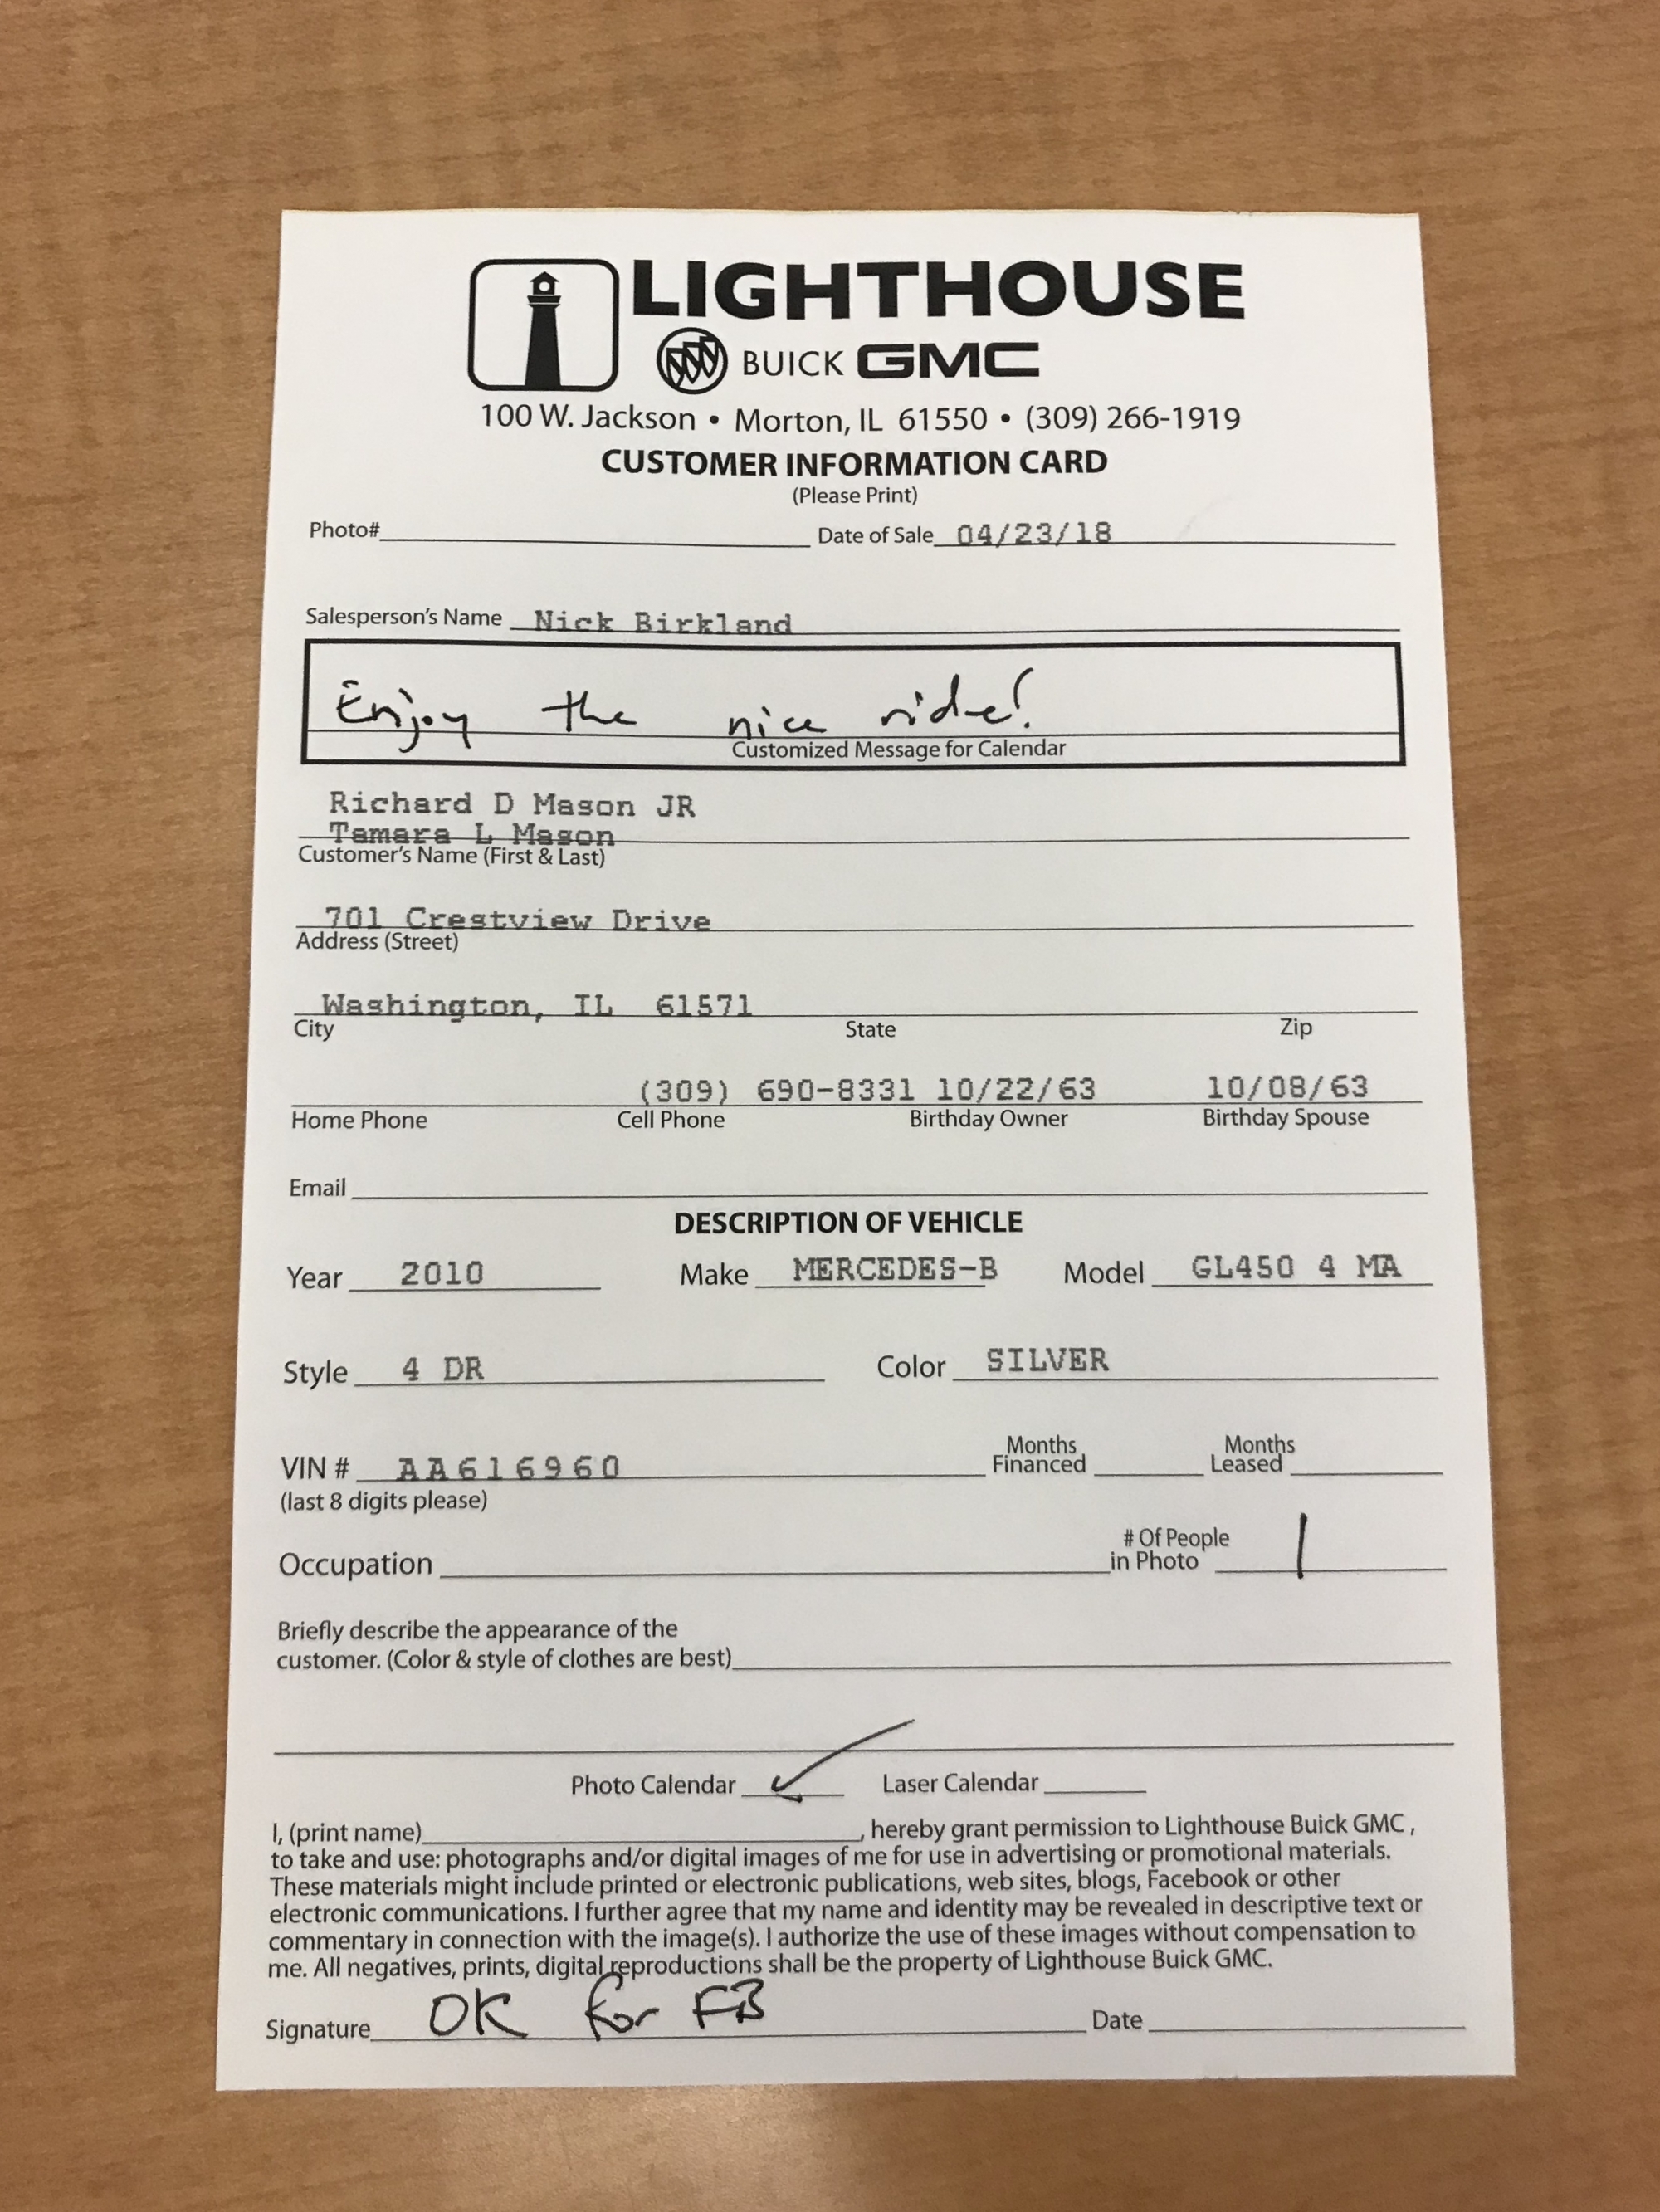 LIGHTHOUSE
BUICK GMC
100 W. Jackson • Morton, IL 61550 • (309) 266-1919
CUSTOMER INFORMATION CARD
(Please Print)
Photo# Date of Sale 04/23/18
Salesperson's Name Nick Birkland
Enjoy the nice ride!
Customized Message for Calendar
Richard D Mason JR
Tamara L Mason
Customer's Name (First & Last)
701 Crestview Drive
Address (Street)
Washington, IL 61571
City State Zip
(309) 690-8331 10/22/63 10/08/63
Home Phone Cell Phone Birthday Owner Birthday Spouse
Email
DESCRIPTION OF VEHICLE
Year 2010 Make MERCEDES-B Model GL450 4 MA
Style 4 DR Color SILVER
VIN # AA616960 Months Financed Months Leased
(last 8 digits please)
Occupation # Of People in Photo 1
Briefly describe the appearance of the
customer. (Color & style of clothes are best)
Photo Calendar ✓ Laser Calendar
I, (print name) , hereby grant permission to Lighthouse Buick GMC ,
to take and use: photographs and/or digital images of me for use in advertising or promotional materials.
These materials might include printed or electronic publications, web sites, blogs, Facebook or other
electronic communications. I further agree that my name and identity may be revealed in descriptive text or
commentary in connection with the image(s). I authorize the use of these images without compensation to
me. All negatives, prints, digital reproductions shall be the property of Lighthouse Buick GMC.
Signature OK for FB Date